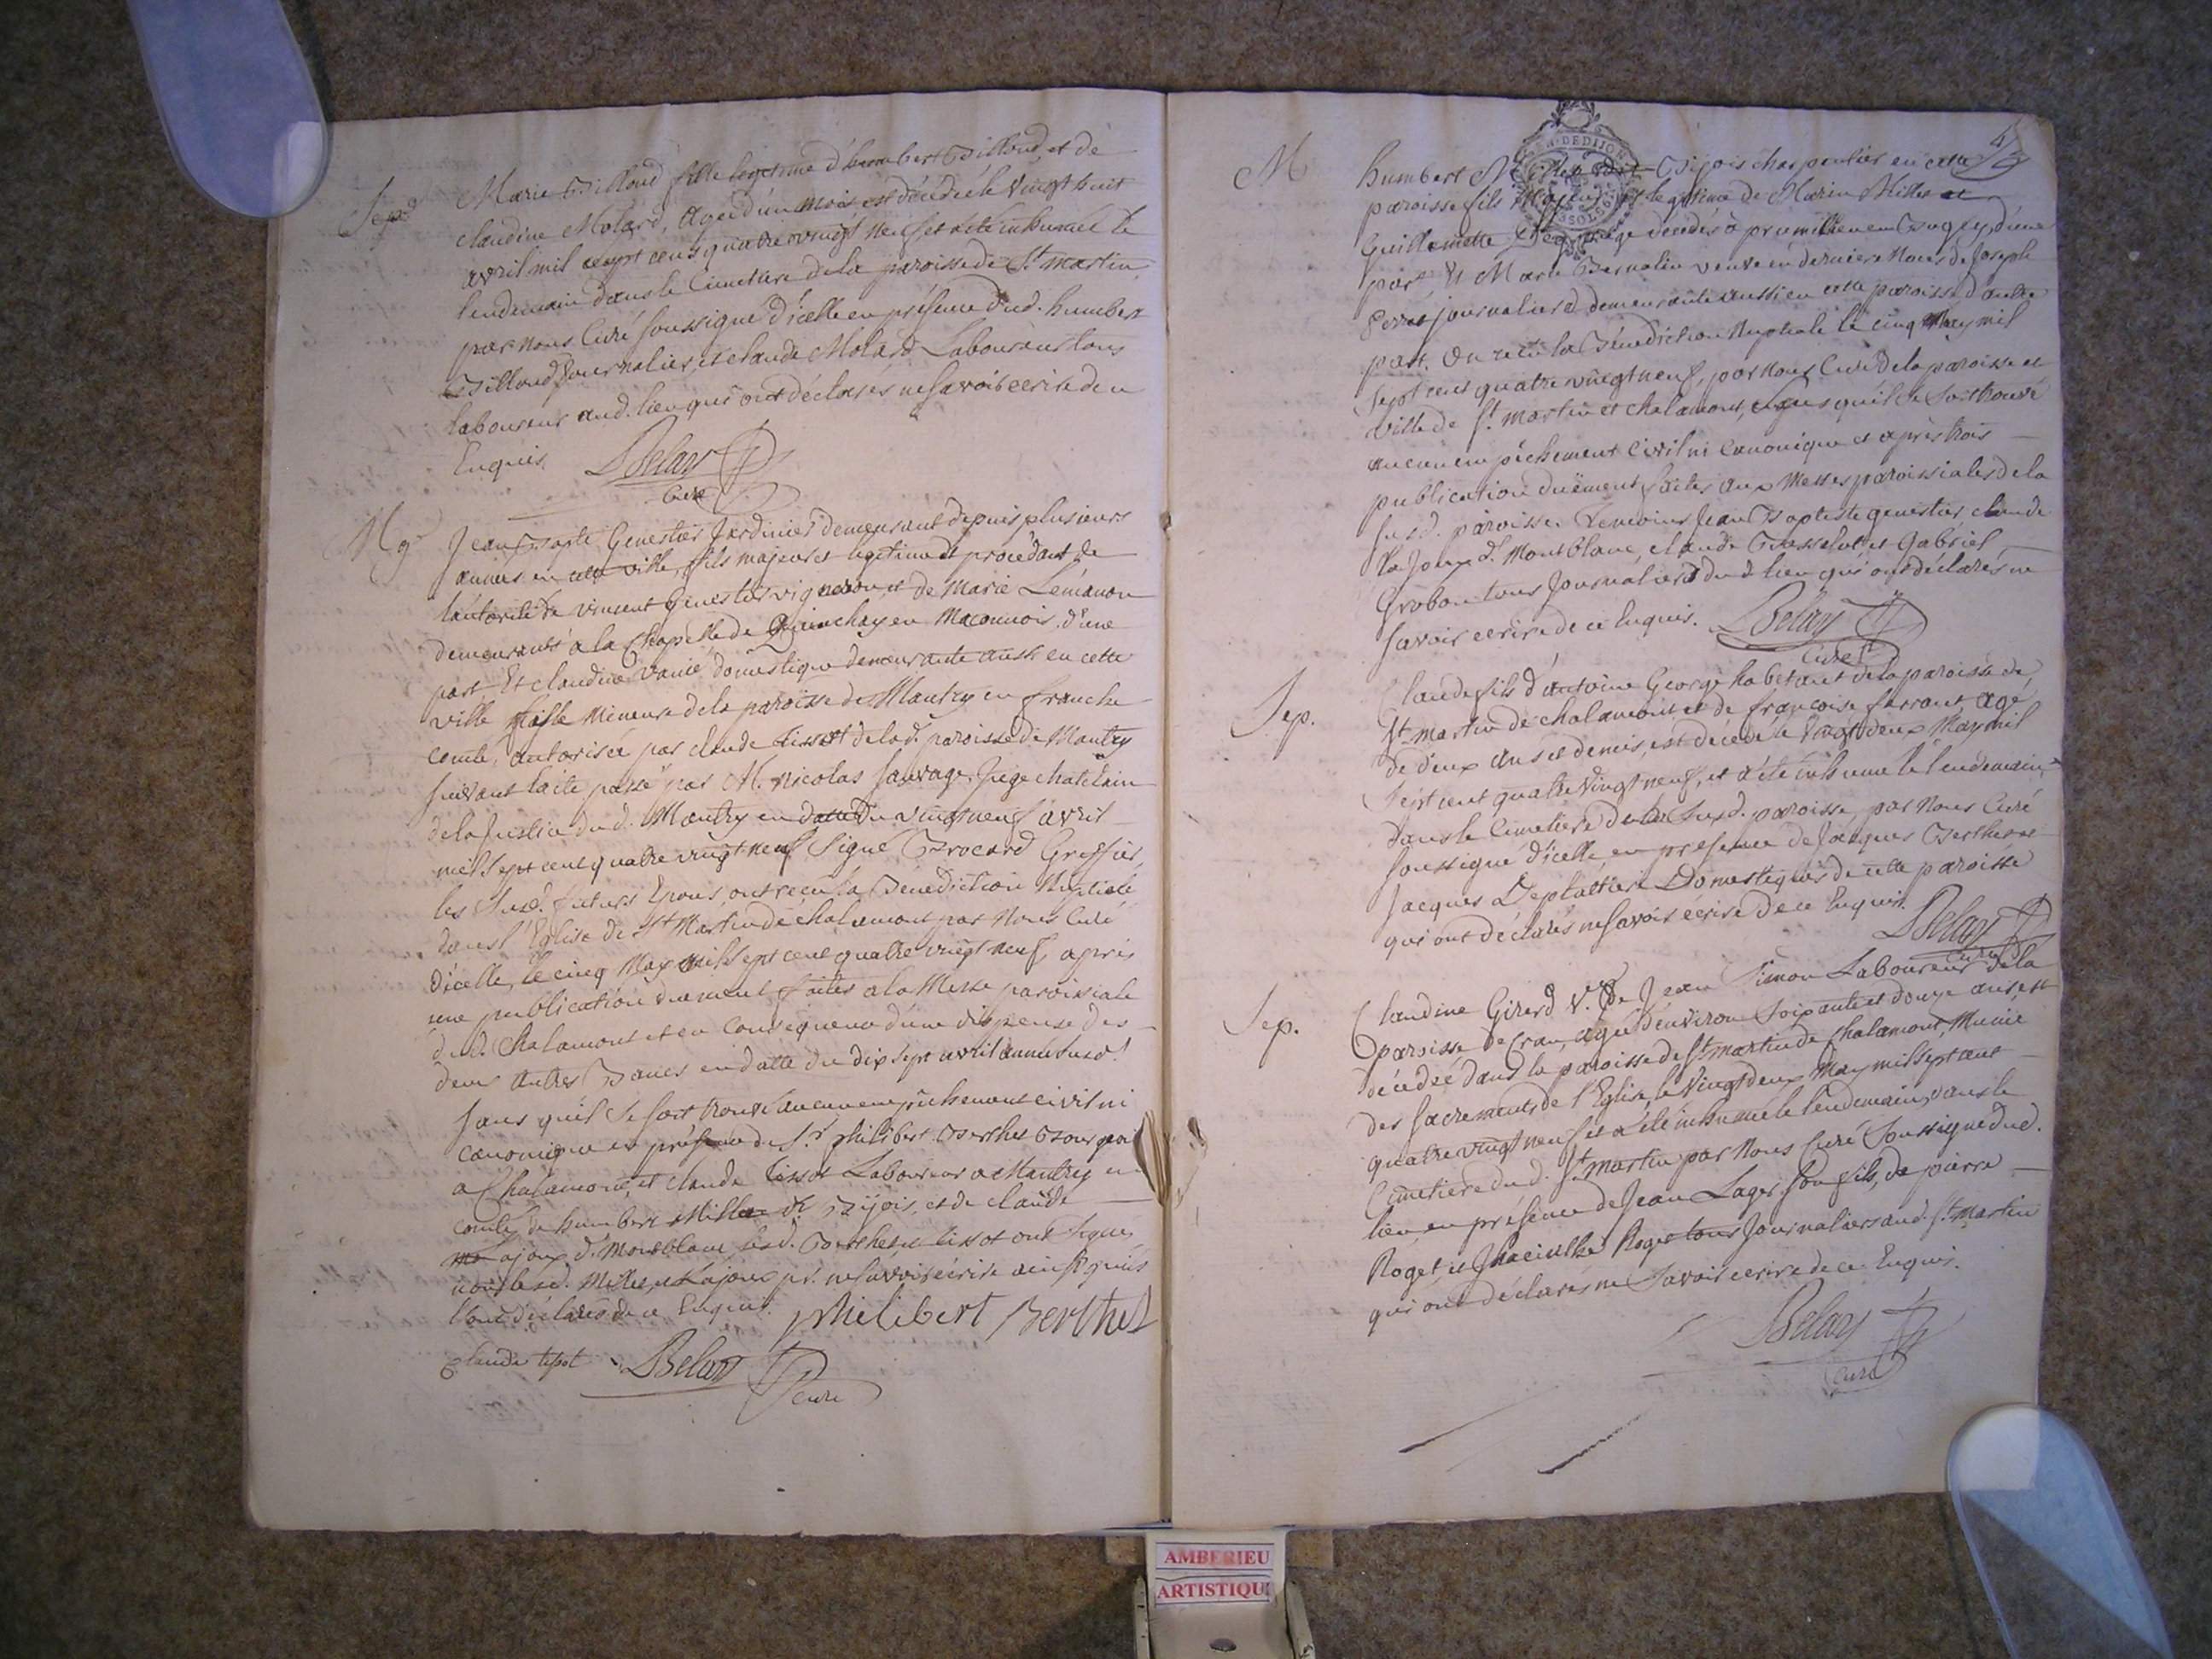 Sep.
Marie Billoud fille legitime d'humbert Billoud, et de
claudine Molard, Agée d'un mois est décédée le Vingt huit
avril mil sept cens quatre vingt neuf et a été inhumée le
lendemain dans le Cimetiere de la paroisse de St. martin,
par Nous Curé soussigné d'icelle en présence dud. humbert
Billoud Journalier, et claude Molard Laboureur tous
laboureur aud. lieu qui ont déclarés ne savoir ecrire de ce
Enquis. LBelay
Curé
Mge.
Jean Bapte Genestier Jardinier demeurant depuis plusieurs
années en cette ville, fils majeur et legitime et procédant de
l'autorité de vincent Genestier vigneron, et de Marie Lémanon
demeurants a la Chapelle de Guinchay en Maconnois, d'une
part Et claudine Vanié domestique demeurante aussi en cette
ville fille Mineure de la paroisse de Mantry en franche
comté, autorisée par claude tissot de lad. paroisse de Mantry
suivant l'acte passé par M. nicolas Sauvage Juge chatelain
de la Justice dud. Mantry en datte du vingt neuf avril
mil sept cent quatre vingt neuf Signé Brocard Greffier,
les Susd. futurs Epoux, ont reçu la Bénédiction Nuptiale
dans l'Eglise de St Martin de chalamont par Nous Curé
d'icelle, le cinq May mil sept cent quatre vingt neuf, après
une publication duement faites a la Messe paroissiale
dud. Chalamont et en Consequence d'une dispense des
deux autres Bancs en datte du dix sept avril année susd.
sans qu'il se soit trouvé aucun empêchement civil ni
canonique en présence de Sr. philibert Berthet Bourgeois
a Chalamont, et claude tissot Laboureur a Mantry en
comté, de humbert Millet dt. Bijois, et de claude
Lajoux d. Montblanc, lesd. Berthet et tissot ont signés
non lesd. Millet, et Lajoux pr. ne savoir écrire ainsi qu'ils
l'ont déclarés de ce Enquis. philibert Berthet
Claude tisot LBelay
curé
M
humbert Millet dit Bijois charpentier en cette
paroisse fils Majeur et legitime de Marin Millet et
Guillemette décédés à premillieu en Bugey, d'une
part, Et Marie Bernolin veuve en derniere Noces de Joseph
journaliere demeurante aussi en cette paroisse d'autre
part. On reçu la Bénédiction Nuptiale le cinq May mil
sept cens quatre vingt neuf, par Nous Curé de la paroisse et
ville de St. martin et chalamont, sans qu'il se soit trouvé
aucun empêchement Civil ni Canonique et après trois
publication duëment faites aux Messes paroissiales de la
susd. paroisse. temoins Jean Baptiste genestier claude
la Joux d. Montblanc, claude Brosselot et Gabriel
Grobon tous Journaliers dud lieu qui ont déclarés ne
savoir ecrire de ce Enquis. LBelay
Curé
Sep.
Claude fils d'antoine George habitant de la paroisse de
St. martin de chalamont, et de françoise ferrant, agé
de deux ans et demis, est décédé le Vingt deux May mil
sept cent quatre Vingt neuf, et a été inhumé le lendemain
dans le Cimetiere de la Susd. paroisse, par Nous Curé
soussigné d'icelle, en présence de Jacques Berthet et
Jacques Deplattiere Domestiques de cette paroisse
qui ont déclarés ne savoir écrire de ce Enquis. LBelay
curé
Sep.
Claudine Girerd Ve. de Jean Simon Laboureur de la
paroisse de Cran, agée d'environ soixante et douze ans, est
décédée dans la paroisse de St martin de Chalamont, Munie
des sacrements de l'Eglise, le Vingt deux May mil sept cent
quatre vingt neuf et a été inhumée le lendemain, dans le
Cimetiere dud. St. martin par Nous Curé Soussigné dud.
lieu, en présence de Jean Lager son fils, de pierre
Roget et Jhacinthe Roget tous Journaliers aud. St. Martin
qui ont déclarés ne savoir ecrire de ce Enquis.
LBelay
Curé
AMBERIEU
ARTISTIQUE